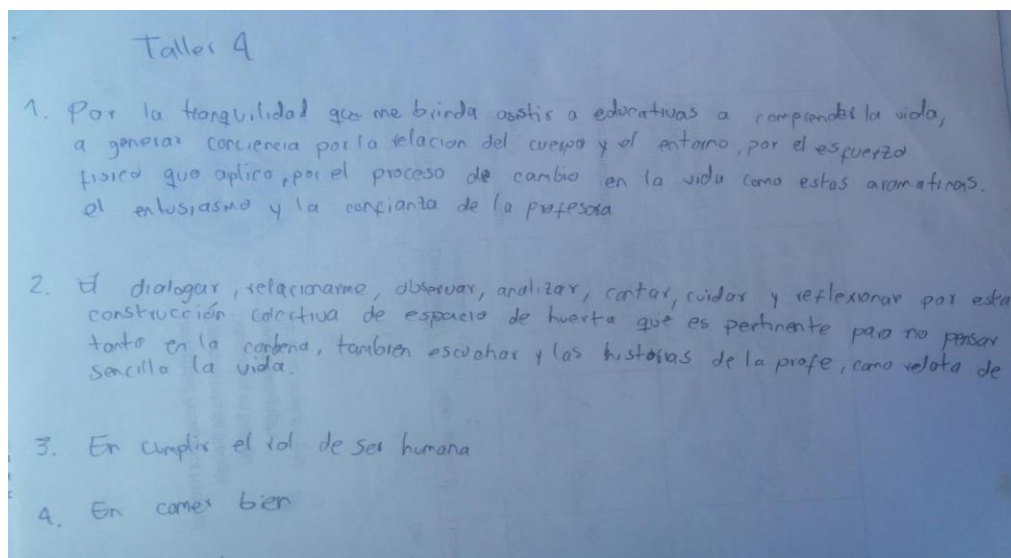 Taller 4
1. Por la tranquilidad que me brinda asistir a educativas a comprender la vida,
a generar conciencia por la relacion del cuerpo y el entorno, por el esfuerzo
fisico que aplico, por el proceso de cambio en la vida como estas aromaticas.
el entusiasmo y la confianza de la profesora
2. El dialogar, relacionarme, observar, analizar, contar, cuidar y reflexionar por esta
construcción colectiva de espacio de huerta que es pertinente para no pensar
tanto en la condena, tambien escuchar y las historias de la profe, como relata de
sencilla la vida.
3. En cumplir el rol de ser humana
4. En comer bien